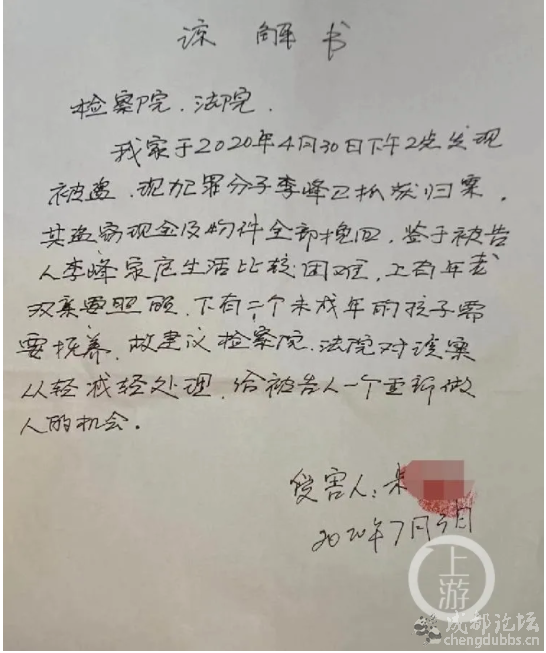 谅解书
检察院、法院、
我家于2020年4月30日下午2点发现
被盗,现犯罪分子李峰已抓获归案,
其盗窃现金及物件全部挽回,鉴于被告
人李峰家庭生活比较困难,上有年老
双亲要照顾,下有二个未成年的孩子需
要抚养,故建议检察院、法院对该案
从轻减轻处理,给被告人一个重新做
人的机会。
受害人:
2020年7月3日
上游
成都论坛
chengdubbs.cn